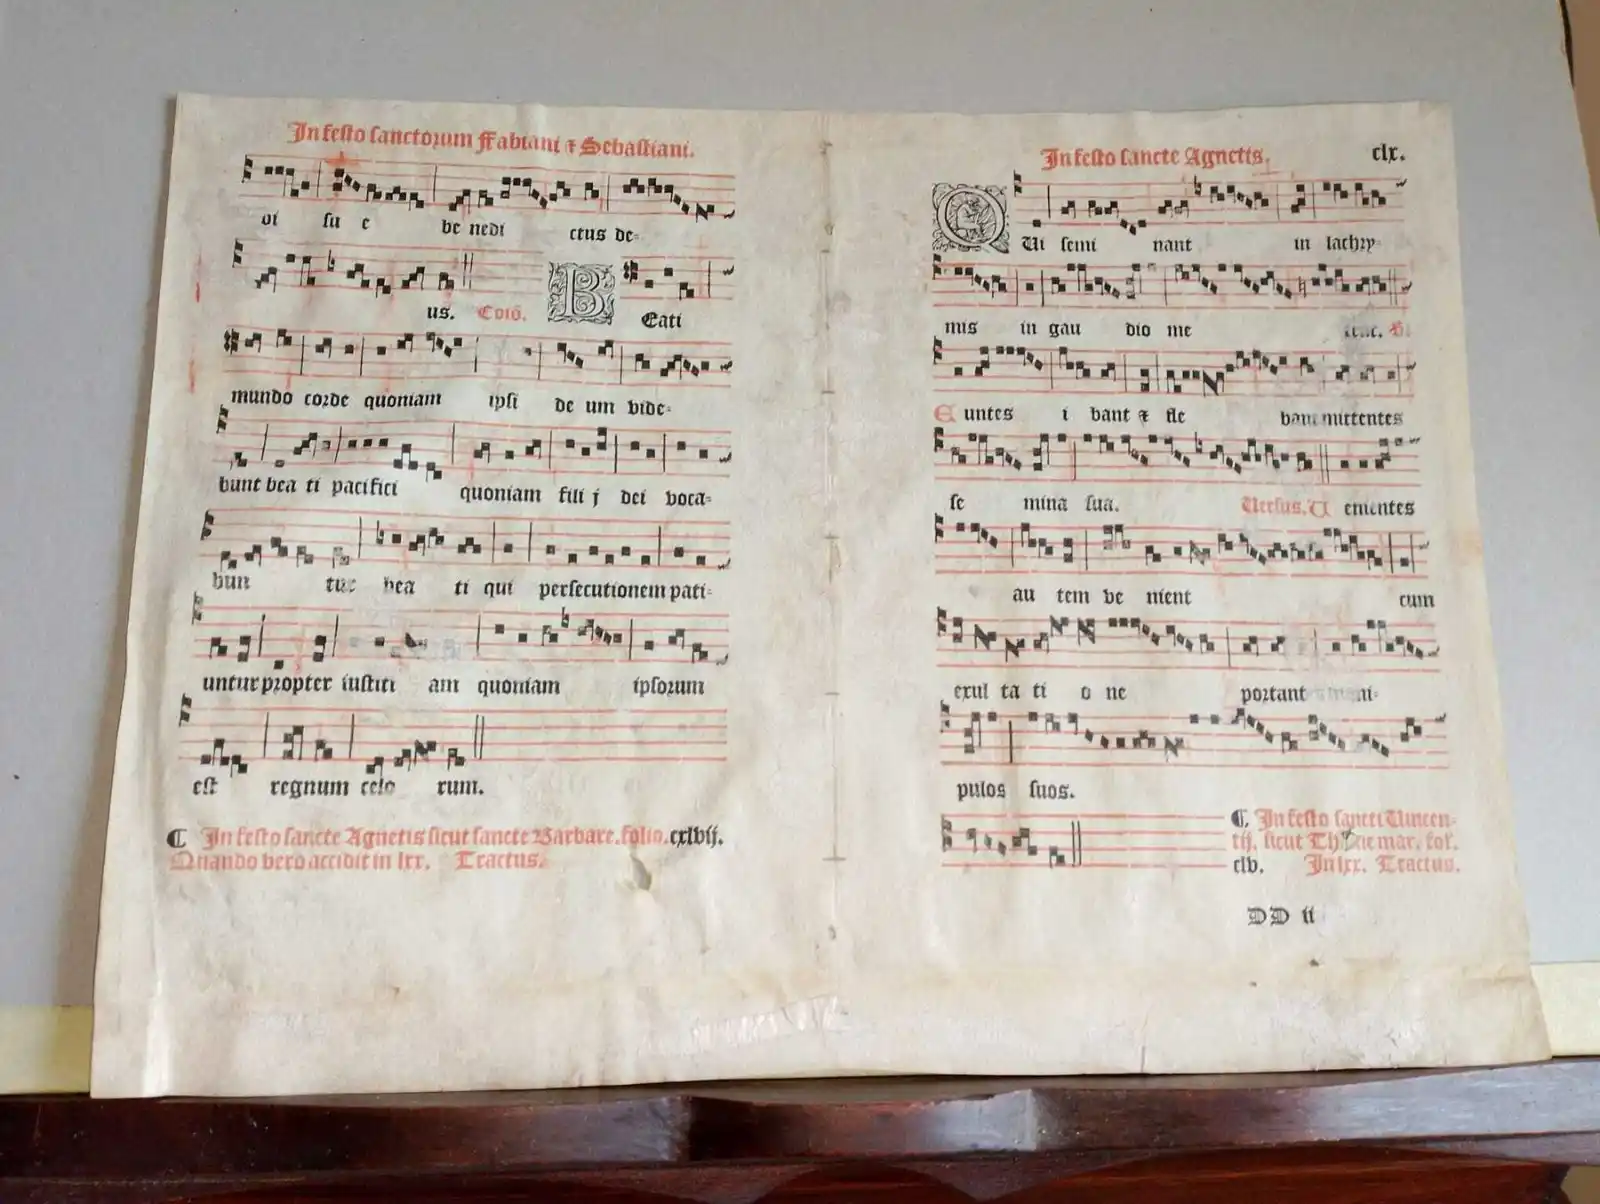 In festo sanctorum Ffabiani ⁊ Sebastiani.
oi su e be nedi ctus de=
us. Coiõ. BEati
mundo corde quoniam ipsi de um vide=
bunt bea ti pacifici quoniam fili j dei voca=
bun tur bea ti qui persecutionem pati=
untur propter iustici am quoniam ipsorum
est regnum celo rum.
¶ In festo sancte Agnetis sicut sancte Barbare. folio. cxlvij.
Quando vero accidit in lxx. Tractus.
In festo sancte Agnetis. clx.
QUi semi nant in lachry=
mis in gau dio me tent.
Euntes i bant ⁊ fle bant mittentes
se mina sua. Versus. Uenientes
au tem ve nient cum
exul ta ti o ne portant mani=
pulos suos.
¶ In festo sancti Uincen=
tij. sicut mar. fol.
clv. In lxx. Tractus.
DD ii